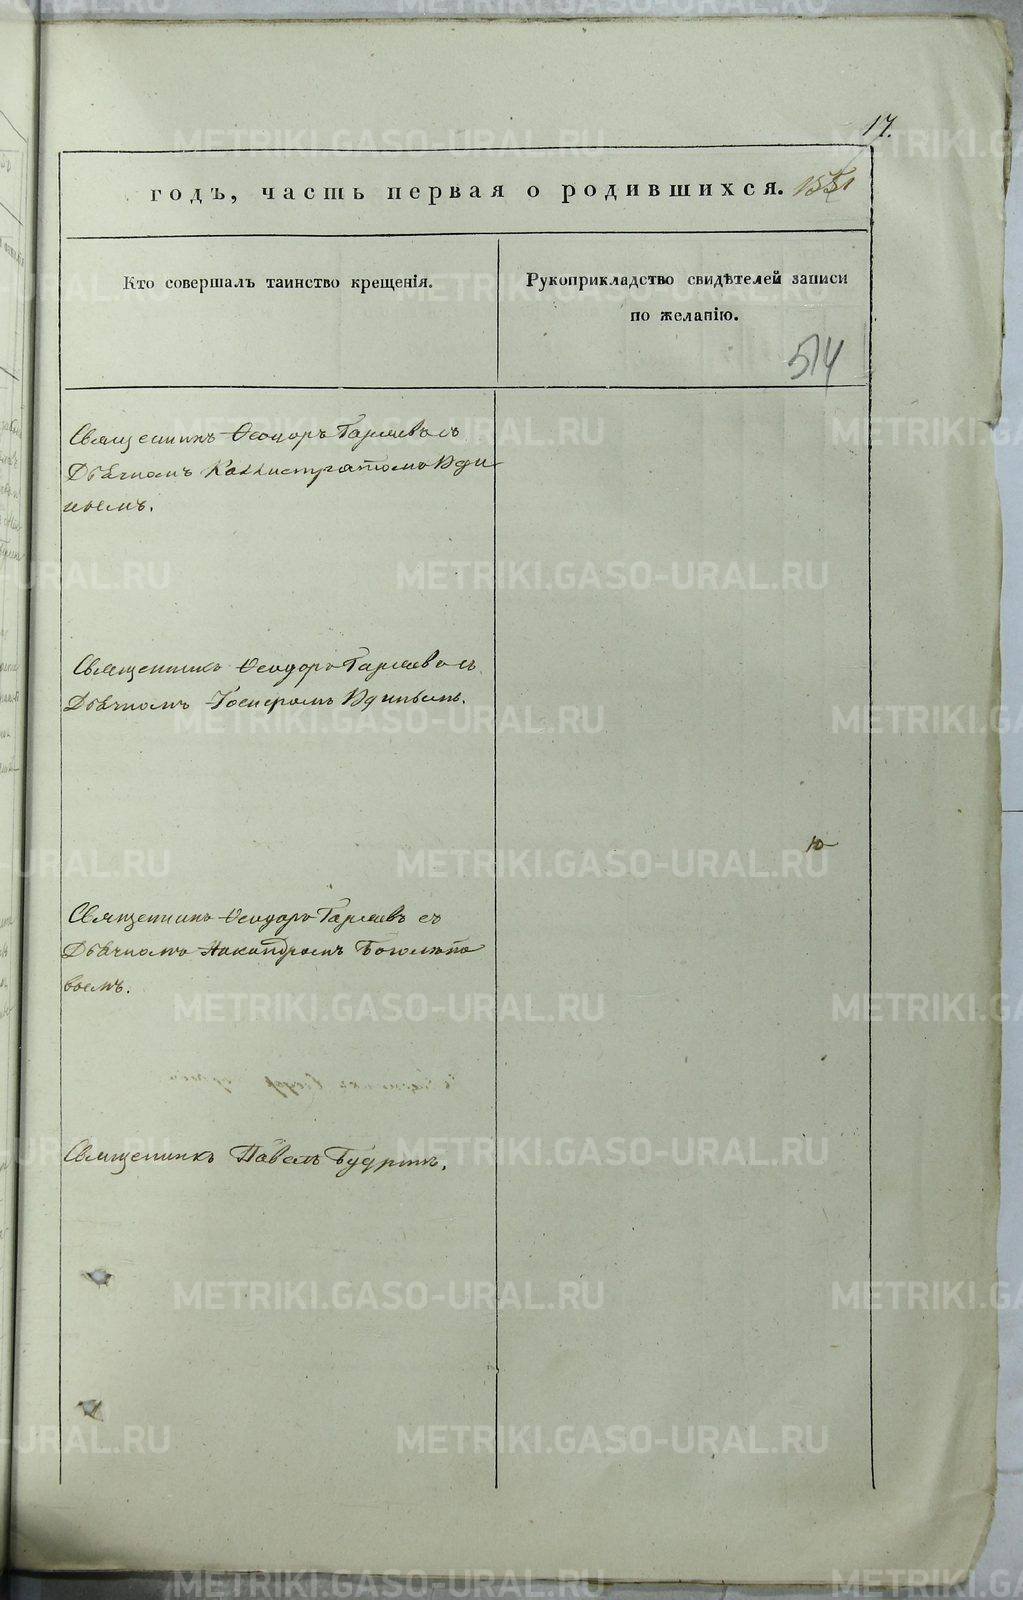 17.
годъ, часть первая о родившихся.
Кто совершалъ таинство крещенія.
Рукоприкладство свидѣтелей записи
по желанію.
514
Священникъ Ѳеодоръ Гаряевъ съ
Дьячкомъ Каллистратомъ Удин
цовымъ.
Священникъ Ѳеодоръ Гаряевъ съ
Дьячкомъ
Священникъ Ѳеодоръ Гаряевъ съ
Дьячкомъ Никандромъ Боголѣпо
вымъ.
Священникъ Павелъ Будринъ.
METRIKI.GASO-URAL.RU